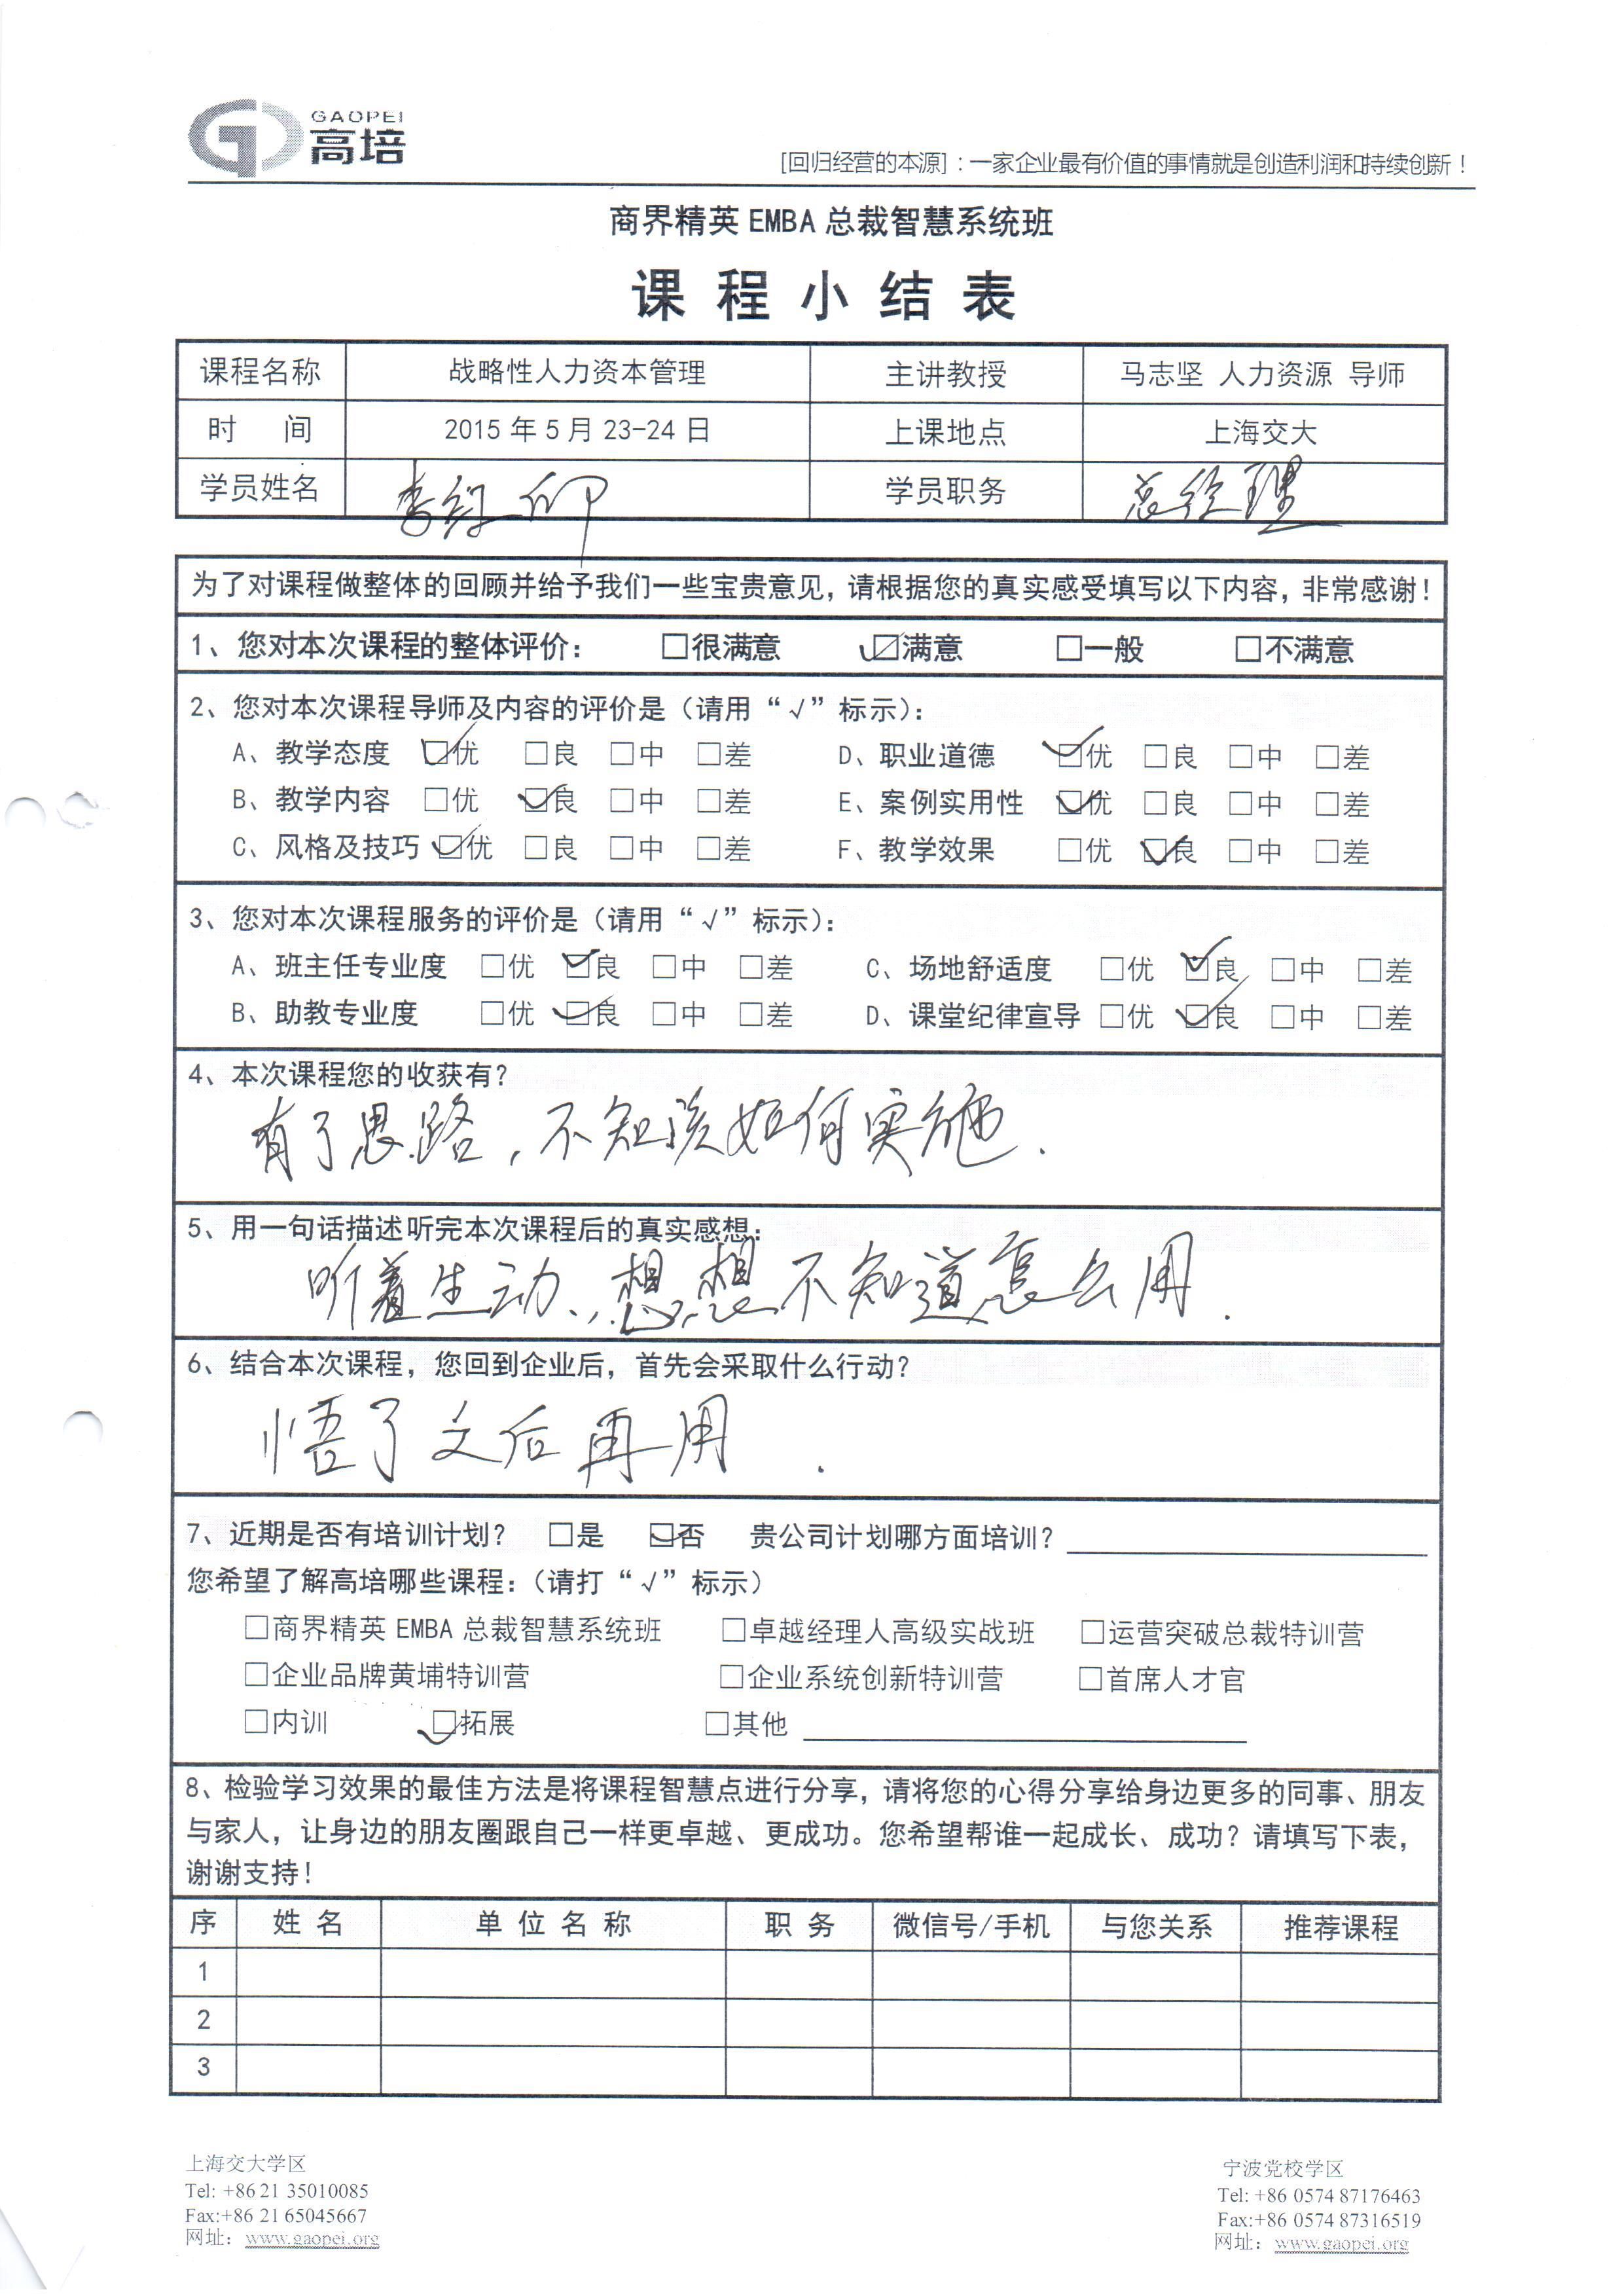 GAOPEI
高培
[回归经营的本源]：一家企业最有价值的事情就是创造利润和持续创新！
商界精英 EMBA 总裁智慧系统班
课程小结表
课程名称 战略性人力资本管理 主讲教授 马志坚 人力资源 导师
时 间 2015年5月23-24日 上课地点 上海交大
学员姓名 李 仰 学员职务 总经理
为了对课程做整体的回顾并给予我们一些宝贵意见，请根据您的真实感受填写以下内容，非常感谢！
1、您对本次课程的整体评价： □很满意 ☑满意 □一般 □不满意
2、您对本次课程导师及内容的评价是（请用“√”标示）：
A、教学态度 ☑优 □良 □中 □差 D、职业道德 ☑优 □良 □中 □差
B、教学内容 □优 ☑良 □中 □差 E、案例实用性 ☑优 □良 □中 □差
C、风格及技巧 ☑优 □良 □中 □差 F、教学效果 □优 ☑良 □中 □差
3、您对本次课程服务的评价是（请用“√”标示）：
A、班主任专业度 □优 ☑良 □中 □差 C、场地舒适度 □优 ☑良 □中 □差
B、助教专业度 □优 ☑良 □中 □差 D、课堂纪律宣导 □优 ☑良 □中 □差
4、本次课程您的收获有？
有了思路，不知该如何实施．
5、用一句话描述听完本次课程后的真实感想：
听着生动、想想不知道怎么用．
6、结合本次课程，您回到企业后，首先会采取什么行动？
悟了之后再用．
7、近期是否有培训计划？ □是 ☑否 贵公司计划哪方面培训？
您希望了解高培哪些课程：（请打“√”标示）
□商界精英 EMBA 总裁智慧系统班 □卓越经理人高级实战班 □运营突破总裁特训营
□企业品牌黄埔特训营 □企业系统创新特训营 □首席人才官
□内训 ☑拓展 □其他
8、检验学习效果的最佳方法是将课程智慧点进行分享，请将您的心得分享给身边更多的同事、朋友
与家人，让身边的朋友圈跟自己一样更卓越、更成功。您希望帮谁一起成长、成功？请填写下表，
谢谢支持！
序 姓名 单位名称 职务 微信号/手机 与您关系 推荐课程
1
2
3
上海交大学区 宁波党校学区
Tel: +86 21 35010085 Tel: +86 0574 87176463
Fax:+86 21 65045667 Fax:+86 0574 87316519
网址：www.gaopei.org 网址：www.gaopei.org